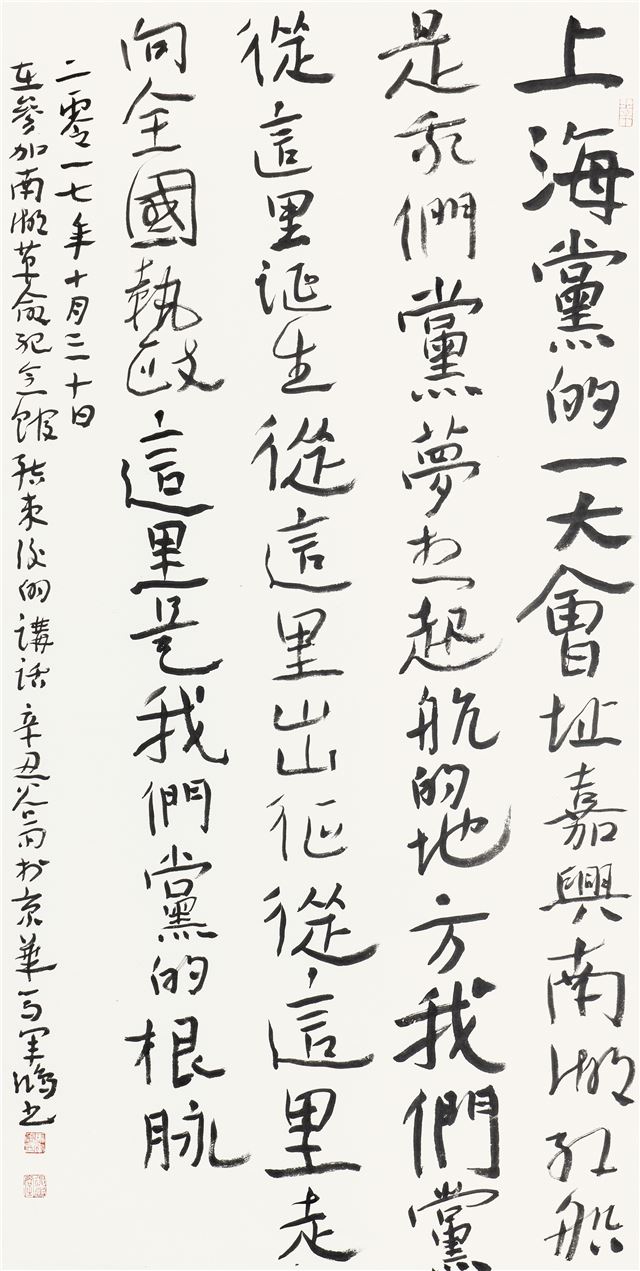 上海黨的一大會址嘉興南湖紅船
是我們黨夢想起航的地方我們黨
從這里誕生從這里出征從這里走
向全國執政這里是我們黨的根脉
二零一七年十月三十日
在參加南湖革命紀念館結束後的講話 辛丑谷雨於京華